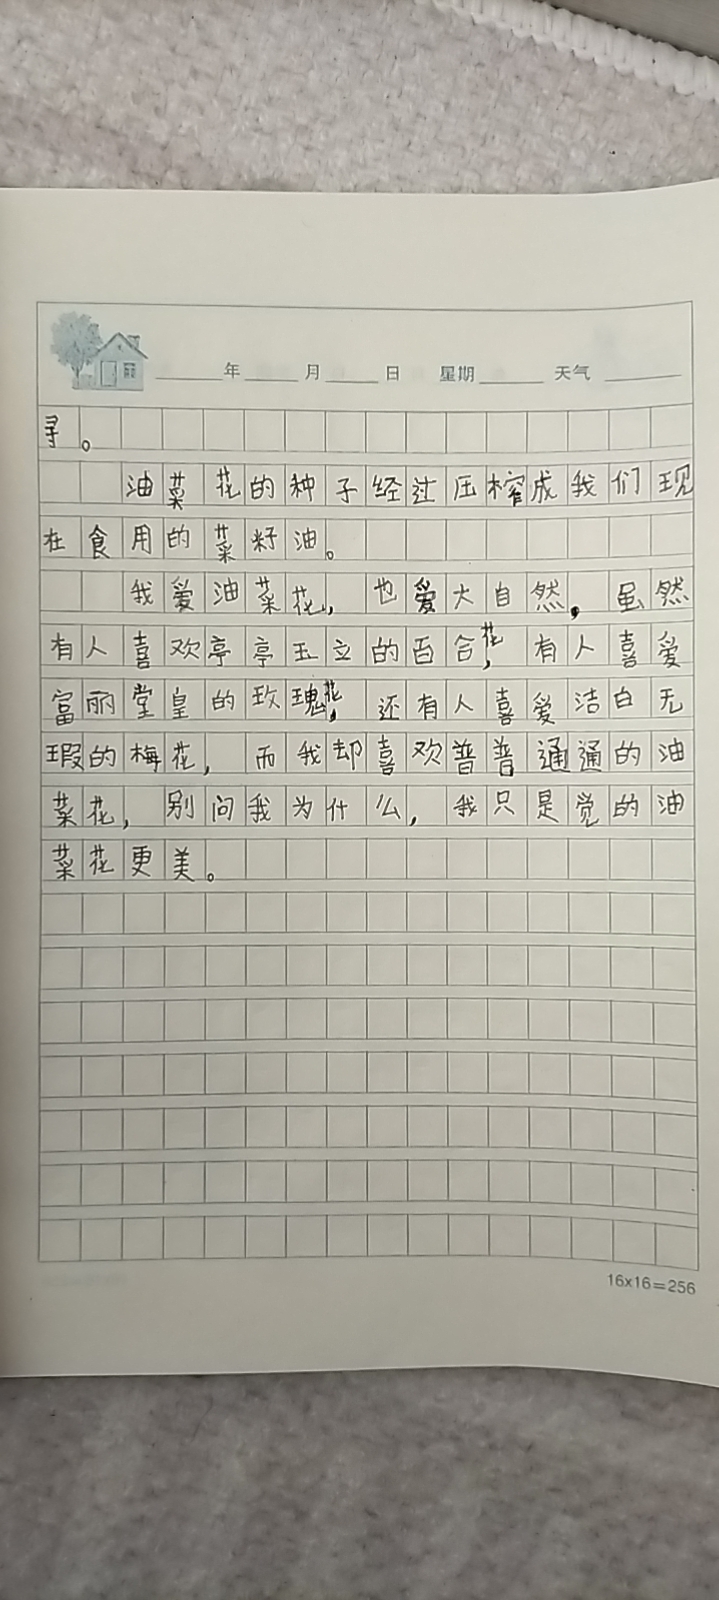 年 月 日 星期 天气
寻。
油菜花的种子经过压榨成我们现
在食用的菜籽油。
我爱油菜花，也爱大自然，虽然
有人喜欢亭亭玉立的百合花，有人喜爱
富丽堂皇的玫瑰花，还有人喜爱洁白无
瑕的梅花，而我却喜欢普普通通的油
菜花，别问我为什么，我只是觉的油
菜花更美。
16x16=256